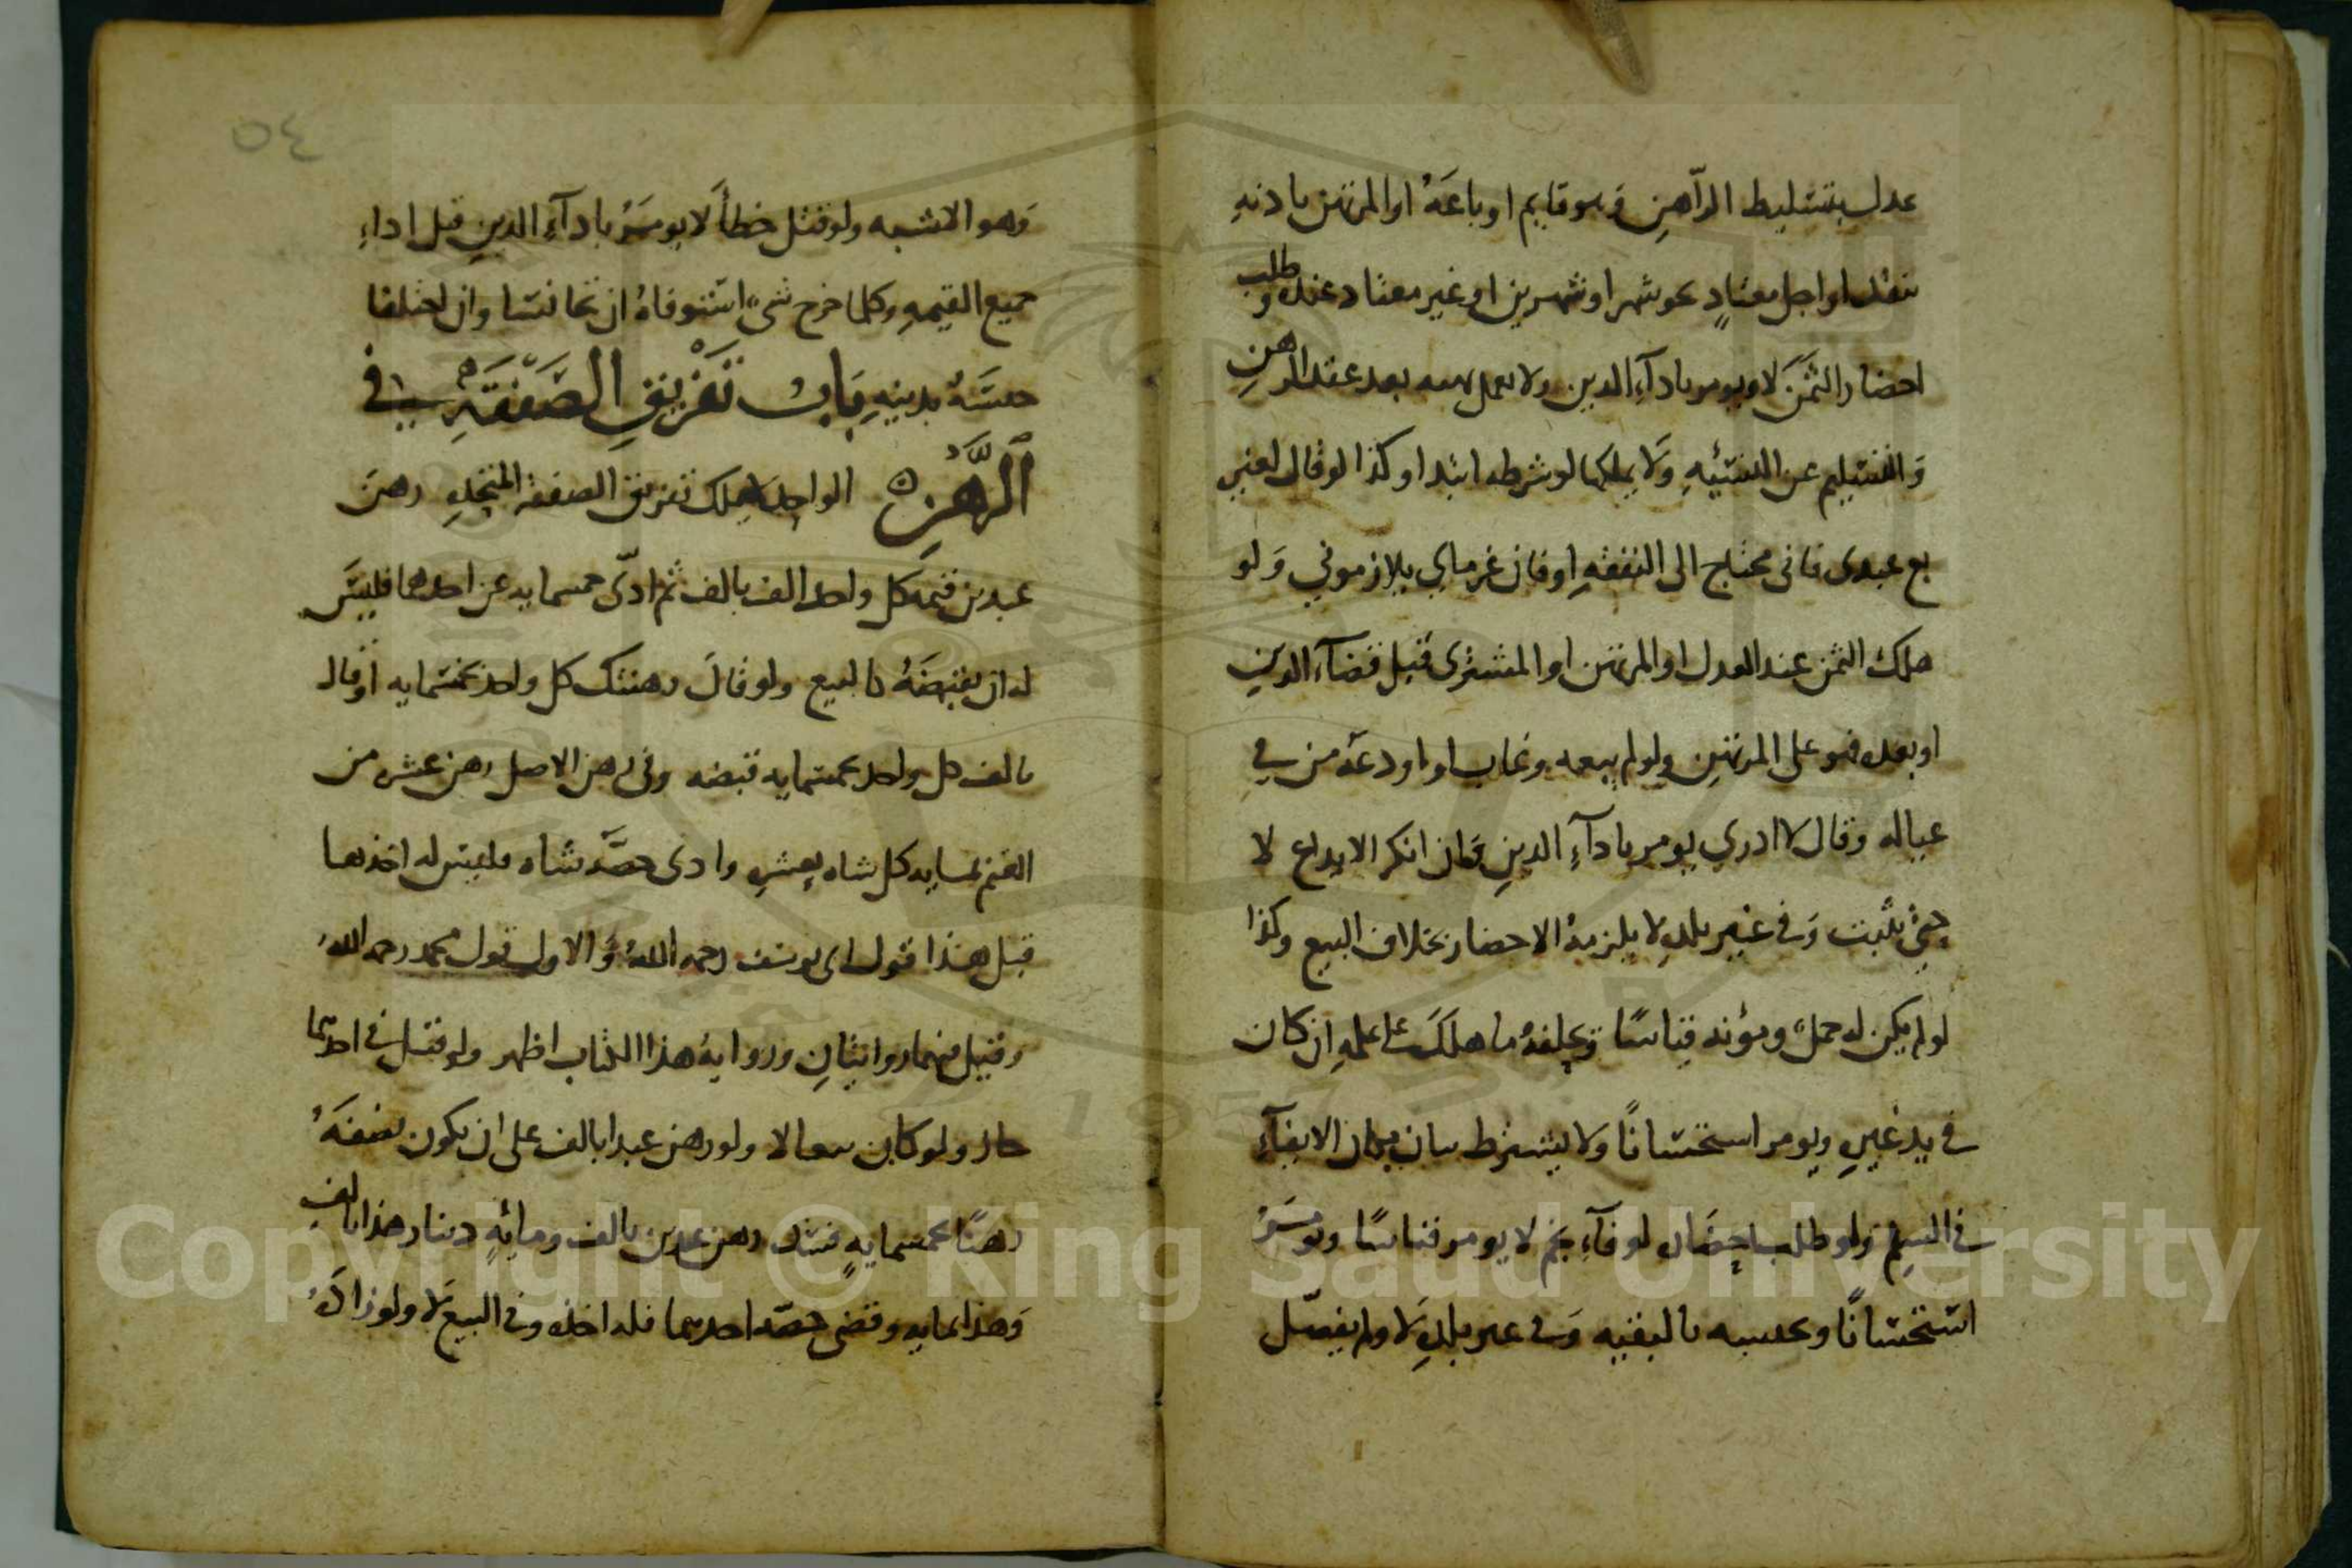 عدل بتسليط الراهن وهو قايم او باعه او المرتهن باذنه
بنقد او اجل معتاد نحو شهر او شهرين او غير معتاد عنده وطلب
احضار الثمن لا ويومر باداء الدين ولا بعد عقد الرهن
والتسليم عن النسئيه ولا يملكها لو شرطه ابتدا وكذا لو قال لغير
بع عبدى فانى محتاج الى النفقه او فان غرماي يلازموني ولو
هلك الثمن عند العدل او المرتهن او المشترى قبل قضآء الدين
او بعده فهو على المرتهن ولو لم يبعه وغاب او اودعه من في
عياله وقال لا ادري يومر باداء الدين فان انكر الايداع لا
حتى يثبت وفى غير بلده لا يلزمه الاحضار بخلاف البيع وكذا
لو لم يكن له حمل ومؤنه قياسا ويحلفه ما هلك على علمه ان كان
في يد غيره ويومر استحسانا ولا يشترط بيان مكان الايفآء
في السلم ولو طلب احضاره لوفآء نجم لا يومر قياسا ويومر
استحسانا بالبقيه وفى غير بلده لا ولم يفصل
٥٤
وهو الاشبه ولو قتل خطأ لا يومر باداء الدين قبل اداء
جميع القيمه وكلما خرج شىء استوفاه ان تجانسا وان اختلفا
حبسه بدينه باب تفريق الصفقة في
الرهن الواحد لا يملك تفريق الصفقه المتحده رهن
عبدين قيمه كل واحد الف بالف ثم ادى خمسمايه عن احدهما فليس
له ان يقبضه كالبيع ولو قال رهنتك كل واحد بخمسمايه او قال
بالف كل واحد بخمسمايه قبضه وفى رهن الاصل رهن عشر من
الغنم بمايه كل شاه بعشره وادى حصه شاه فليس له اخذها
قيل هذا قول ابى يوسف رحمه الله والاول قول محمد رحمه الله
وقيل فيهما روايتان ورواية هذا الكتاب اظهر ولو قبل في احديهما
جاز ولو كان بيعا لا ولو رهن عبدا بالف على ان يكون نصفه
رهنا بخمسمايه فسد رهن عبدين بالف ومائه دينار هذا بالف
وهذا بمايه وقضى حصه احديهما فله اخذه وفى البيع لا ولو زاده